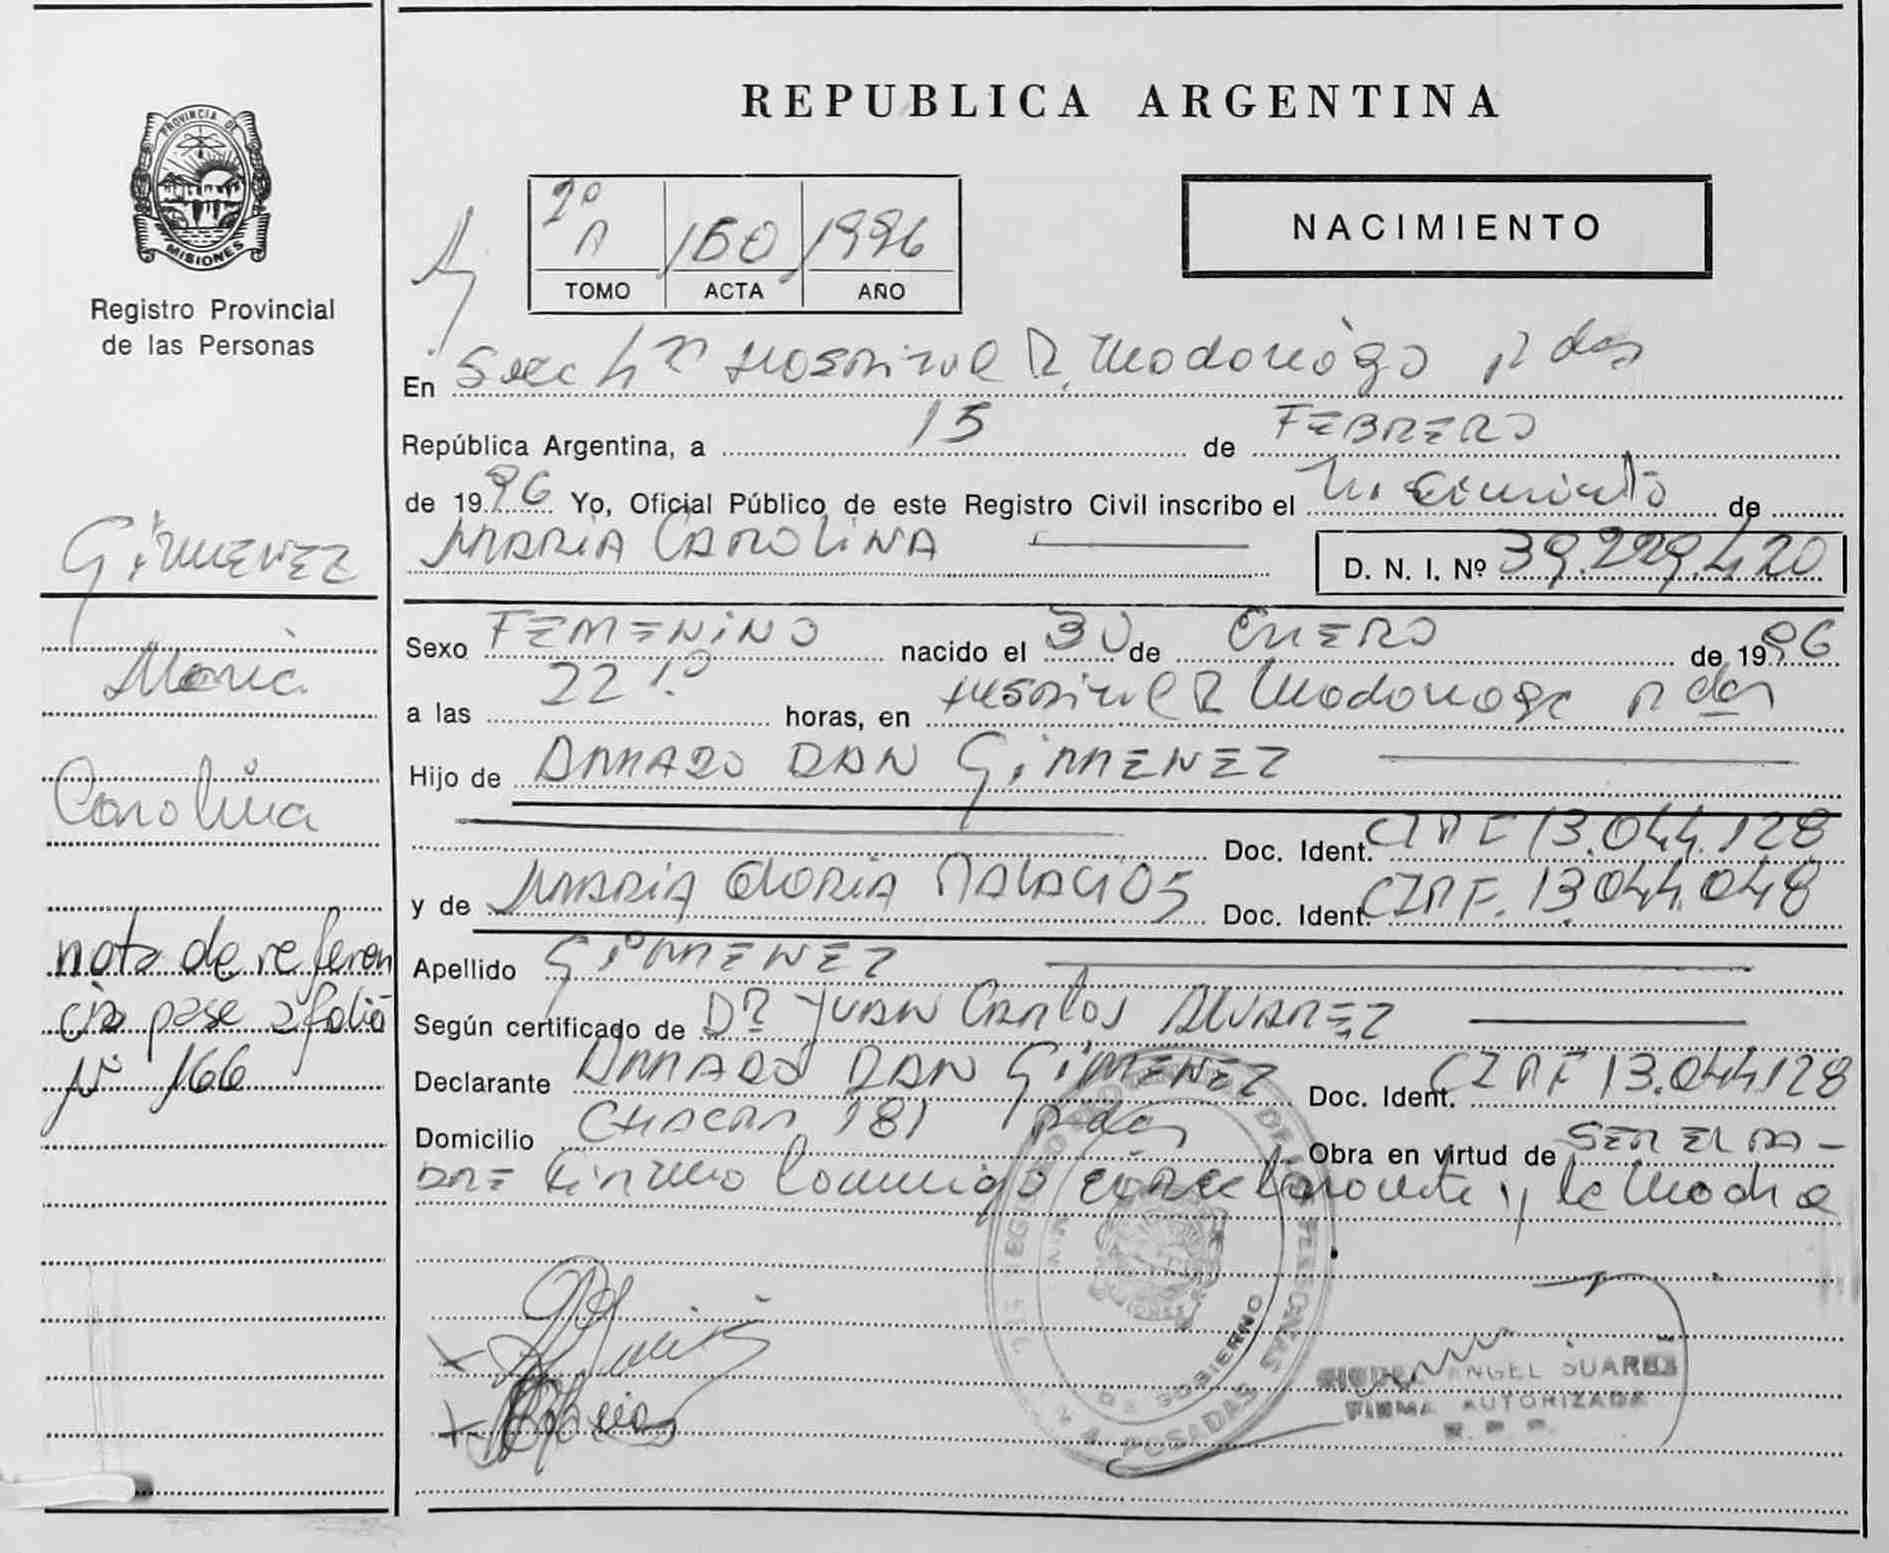 PROVINCIA DE
MISIONES
Registro Provincial
de las Personas
REPUBLICA ARGENTINA
NACIMIENTO
2º A 160 1996
TOMO ACTA AÑO
En Secc 4ª Hospital R. Madariaga Pdas
República Argentina, a 15 de FEBRERO
de 1996 Yo, Oficial Público de este Registro Civil inscribo el Nacimiento de
MARIA CAROLINA
D. N. I. Nº 39.229.420
GIMENEZ
Maria
Carolina
nota de referen
cia pase a folio
Nº 166
Sexo FEMENINO nacido el 30 de ENERO de 1996
a las 22 1.º horas, en Hospital R Madariaga Pdas
Hijo de AMADO RAN GIMENEZ
Doc. Ident. CIPF 13.044.128
y de MARIA GLORIA PALACIOS Doc. Ident. CIPF. 13.044.048
Apellido GIMENEZ
Según certificado de Dr. JUAN CARLOS ALVAREZ
Declarante AMADO RAN GIMENEZ Doc. Ident. CIPF 13.044.128
Domicilio CHACRA 181 Pdas Obra en virtud de SER EL PA-
DRE Firman Conmigo el declarante y la Madre
GOBIERNO
POSADAS
ANGEL SUAREZ
FIRMA AUTORIZADA